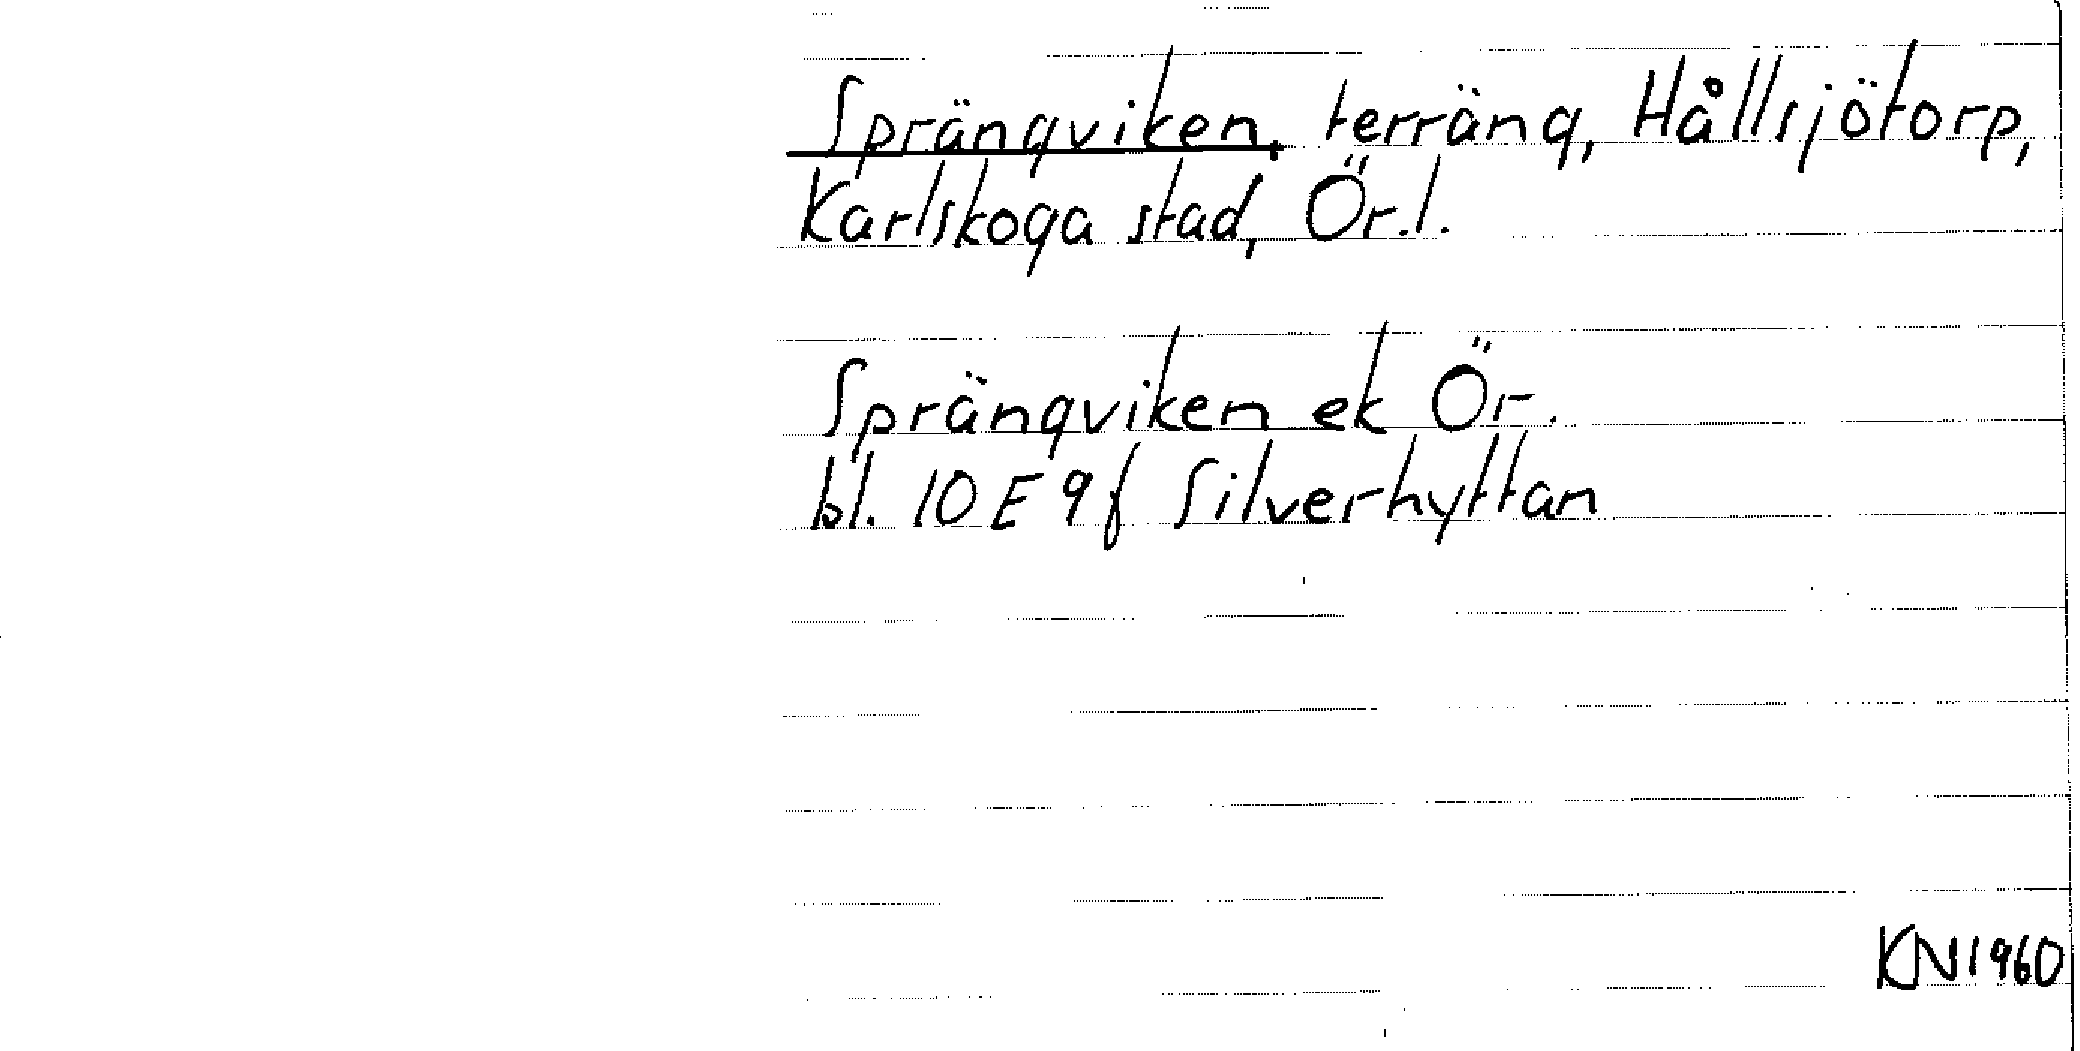 Sprängviken, terräng, Hållsjötorp,
Karlskoga stad, Ör.l.
Sprängviken ek Ör.
bl. 10 E 9f Silverhyttan
KN 1960